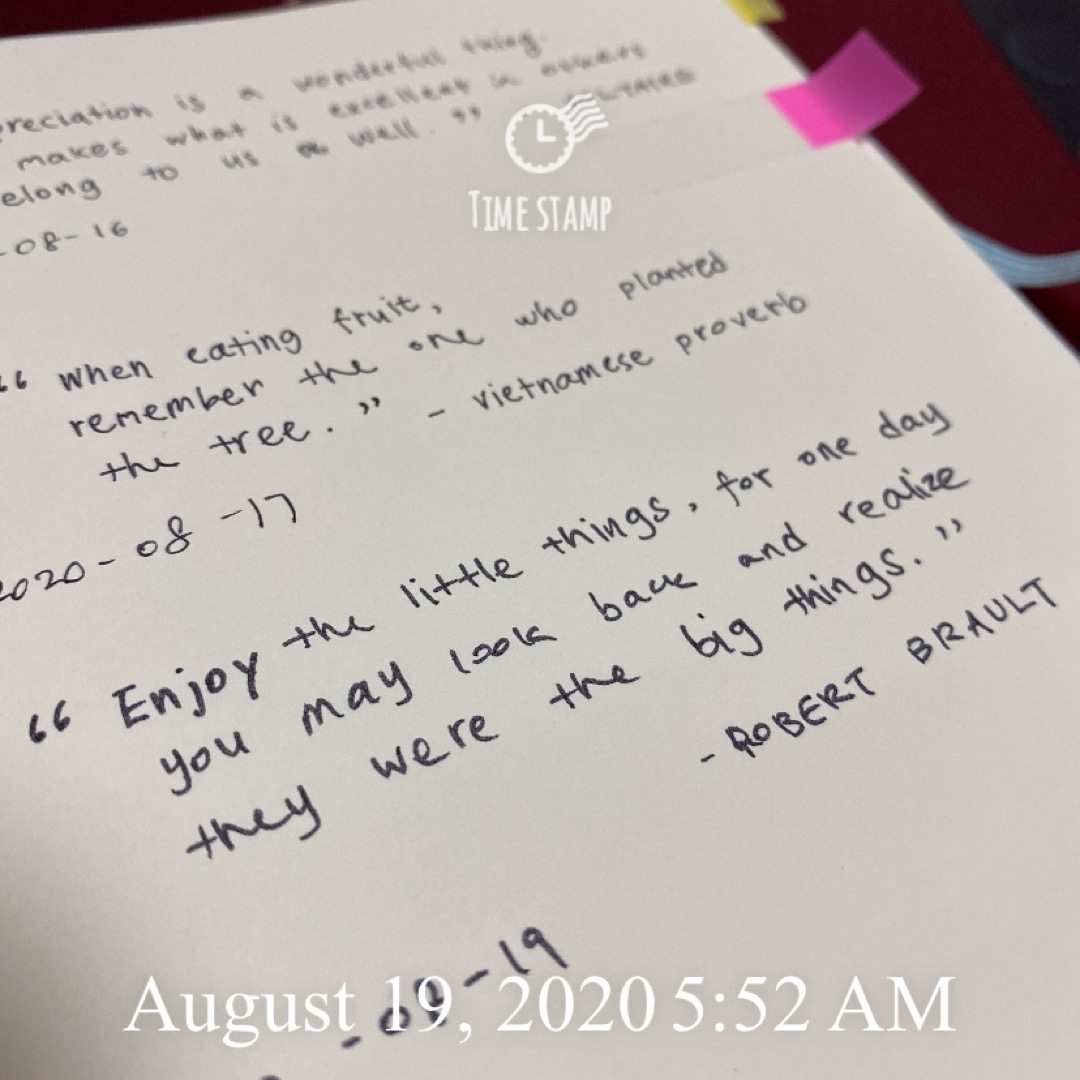 preciation is a wonderful thing.
makes what is excellent in others
elong to us as well."
-08-16
TIME STAMP
"When eating fruit,
remember the one who planted
the tree." - vietnamese proverb
2020-08-17
"Enjoy the little things, for one day
you may look back and realize
they were the big things."
- ROBERT BRAULT
-08-19
August 19, 2020 5:52 AM